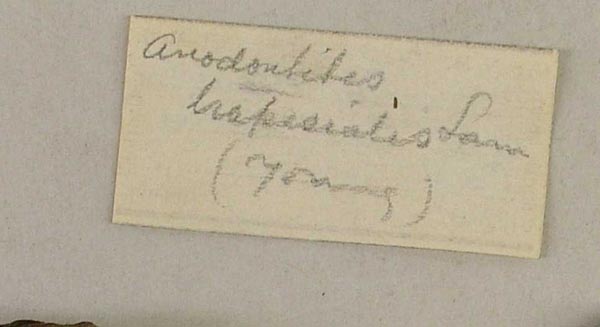 Anodontites
trapesialis Lam
(young)